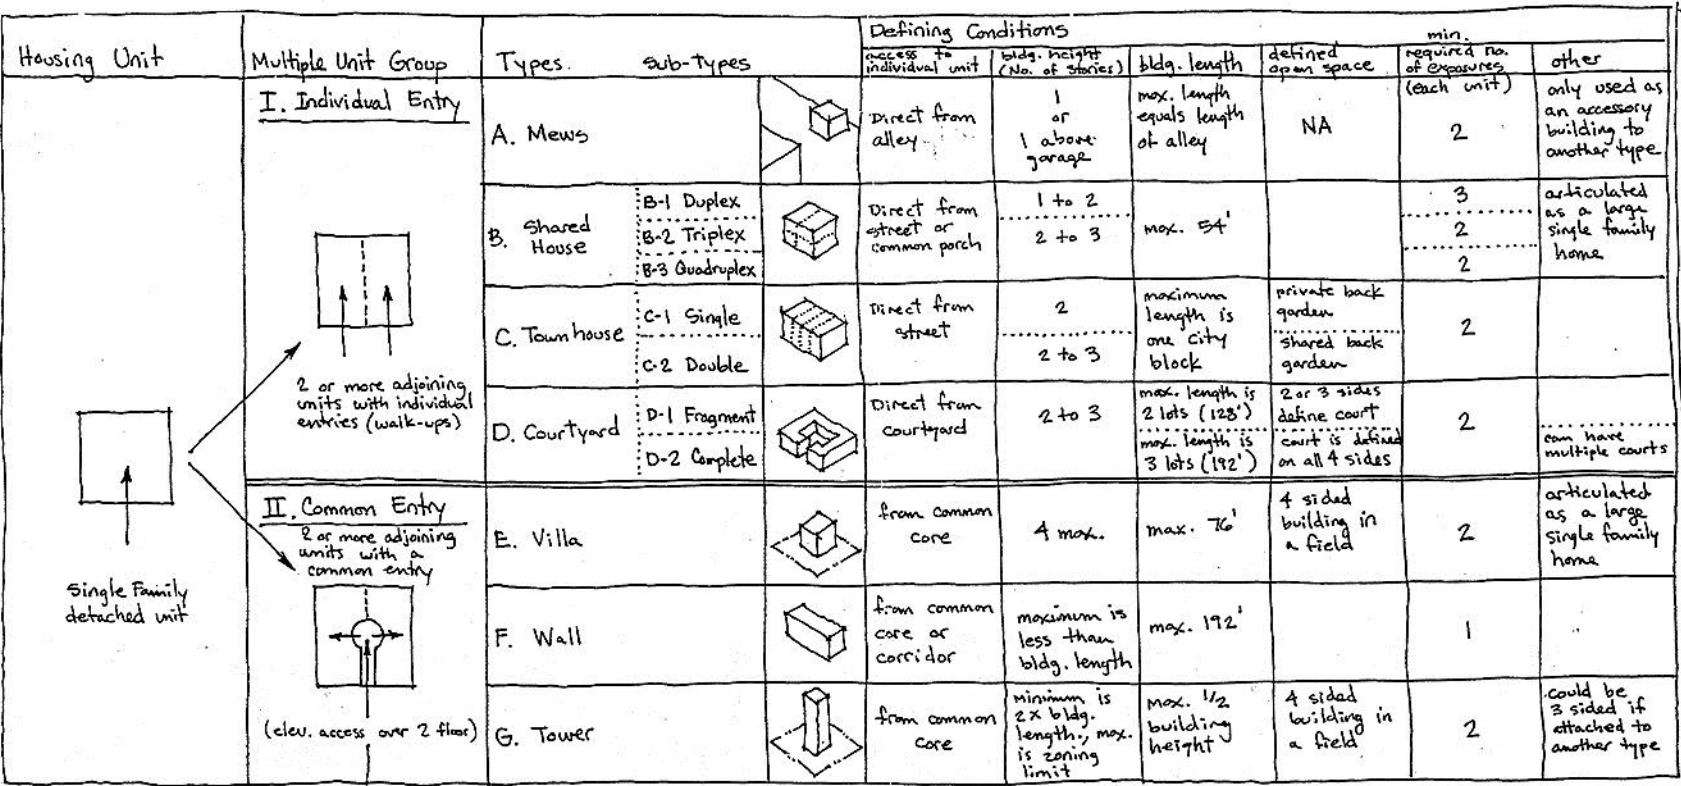 Housing Unit
Multiple Unit Group
Types
Sub-Types
Defining Conditions
access to
individual unit
bldg. height
(No. of stories)
bldg. length
defined
open space
min.
required no.
of exposures
(each unit)
other
Single Family
detached unit
I. Individual Entry
2 or more adjoining
units with individual
entries (walk-ups)
A. Mews
Direct from
alley
1
or
1 above
garage
max. length
equals length
of alley
NA
2
only used as
an accessory
building to
another type
B. Shared
House
B-1 Duplex
B-2 Triplex
B-3 Quadruplex
Direct from
street or
common porch
1 to 2
2 to 3
max. 54'
3
2
2
articulated
as a large
single family
home
C. Townhouse
C-1 Single
C-2 Double
Direct from
street
2
2 to 3
maximum
length is
one city
block
private back
garden
shared back
garden
2
D. Courtyard
D-1 Fragment
D-2 Complete
Direct from
courtyard
2 to 3
max. length is
2 lots (128')
max. length is
3 lots (192')
2 or 3 sides
define court
court is defined
on all 4 sides
2
can have
multiple courts
II. Common Entry
2 or more adjoining
units with a
common entry
(elev. access over 2 floor)
E. Villa
from common
core
4 max.
max. 76'
4 sided
building in
a field
2
articulated
as a large
single family
home
F. Wall
from common
core or
corridor
maximum is
less than
bldg. length
max. 192'
1
G. Tower
from common
core
Minimum is
2x bldg.
length., max.
is zoning
limit
Max. 1/2
building
height
4 sided
building in
a field
2
could be
3 sided if
attached to
another type